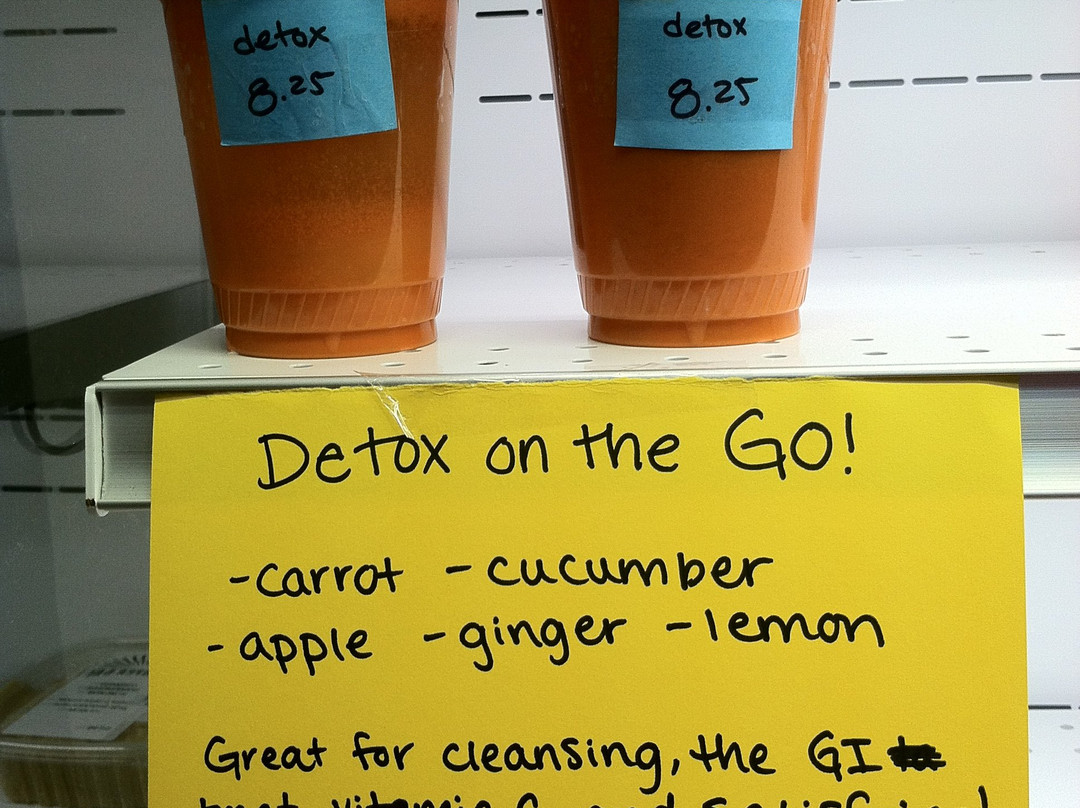 detox
8.25
detox
8.25
Detox on the GO!
-carrot -cucumber
-apple -ginger -lemon
Great for cleansing, the GI